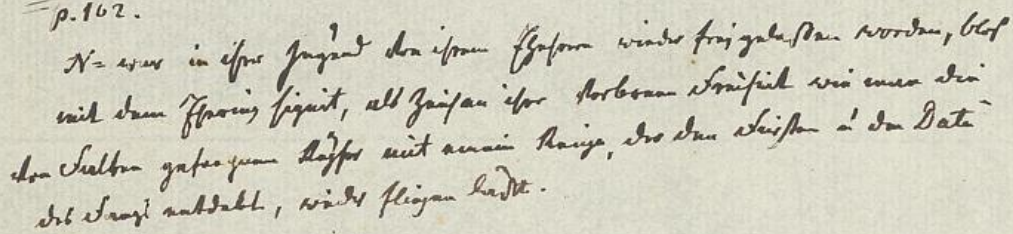 p. 162.
N= war in ihrer Jugend von ihrem Eheherrn wieder freigelaßen worden, blos
mit dem Ehering signirt, als Zeichen ihrer verlornen Freiheit wie man die
von Falken gefangnen Reyher mit einem Ringe, der den Fürsten u den Datu
des Fangs entdekt, wieder fliegen läßt.